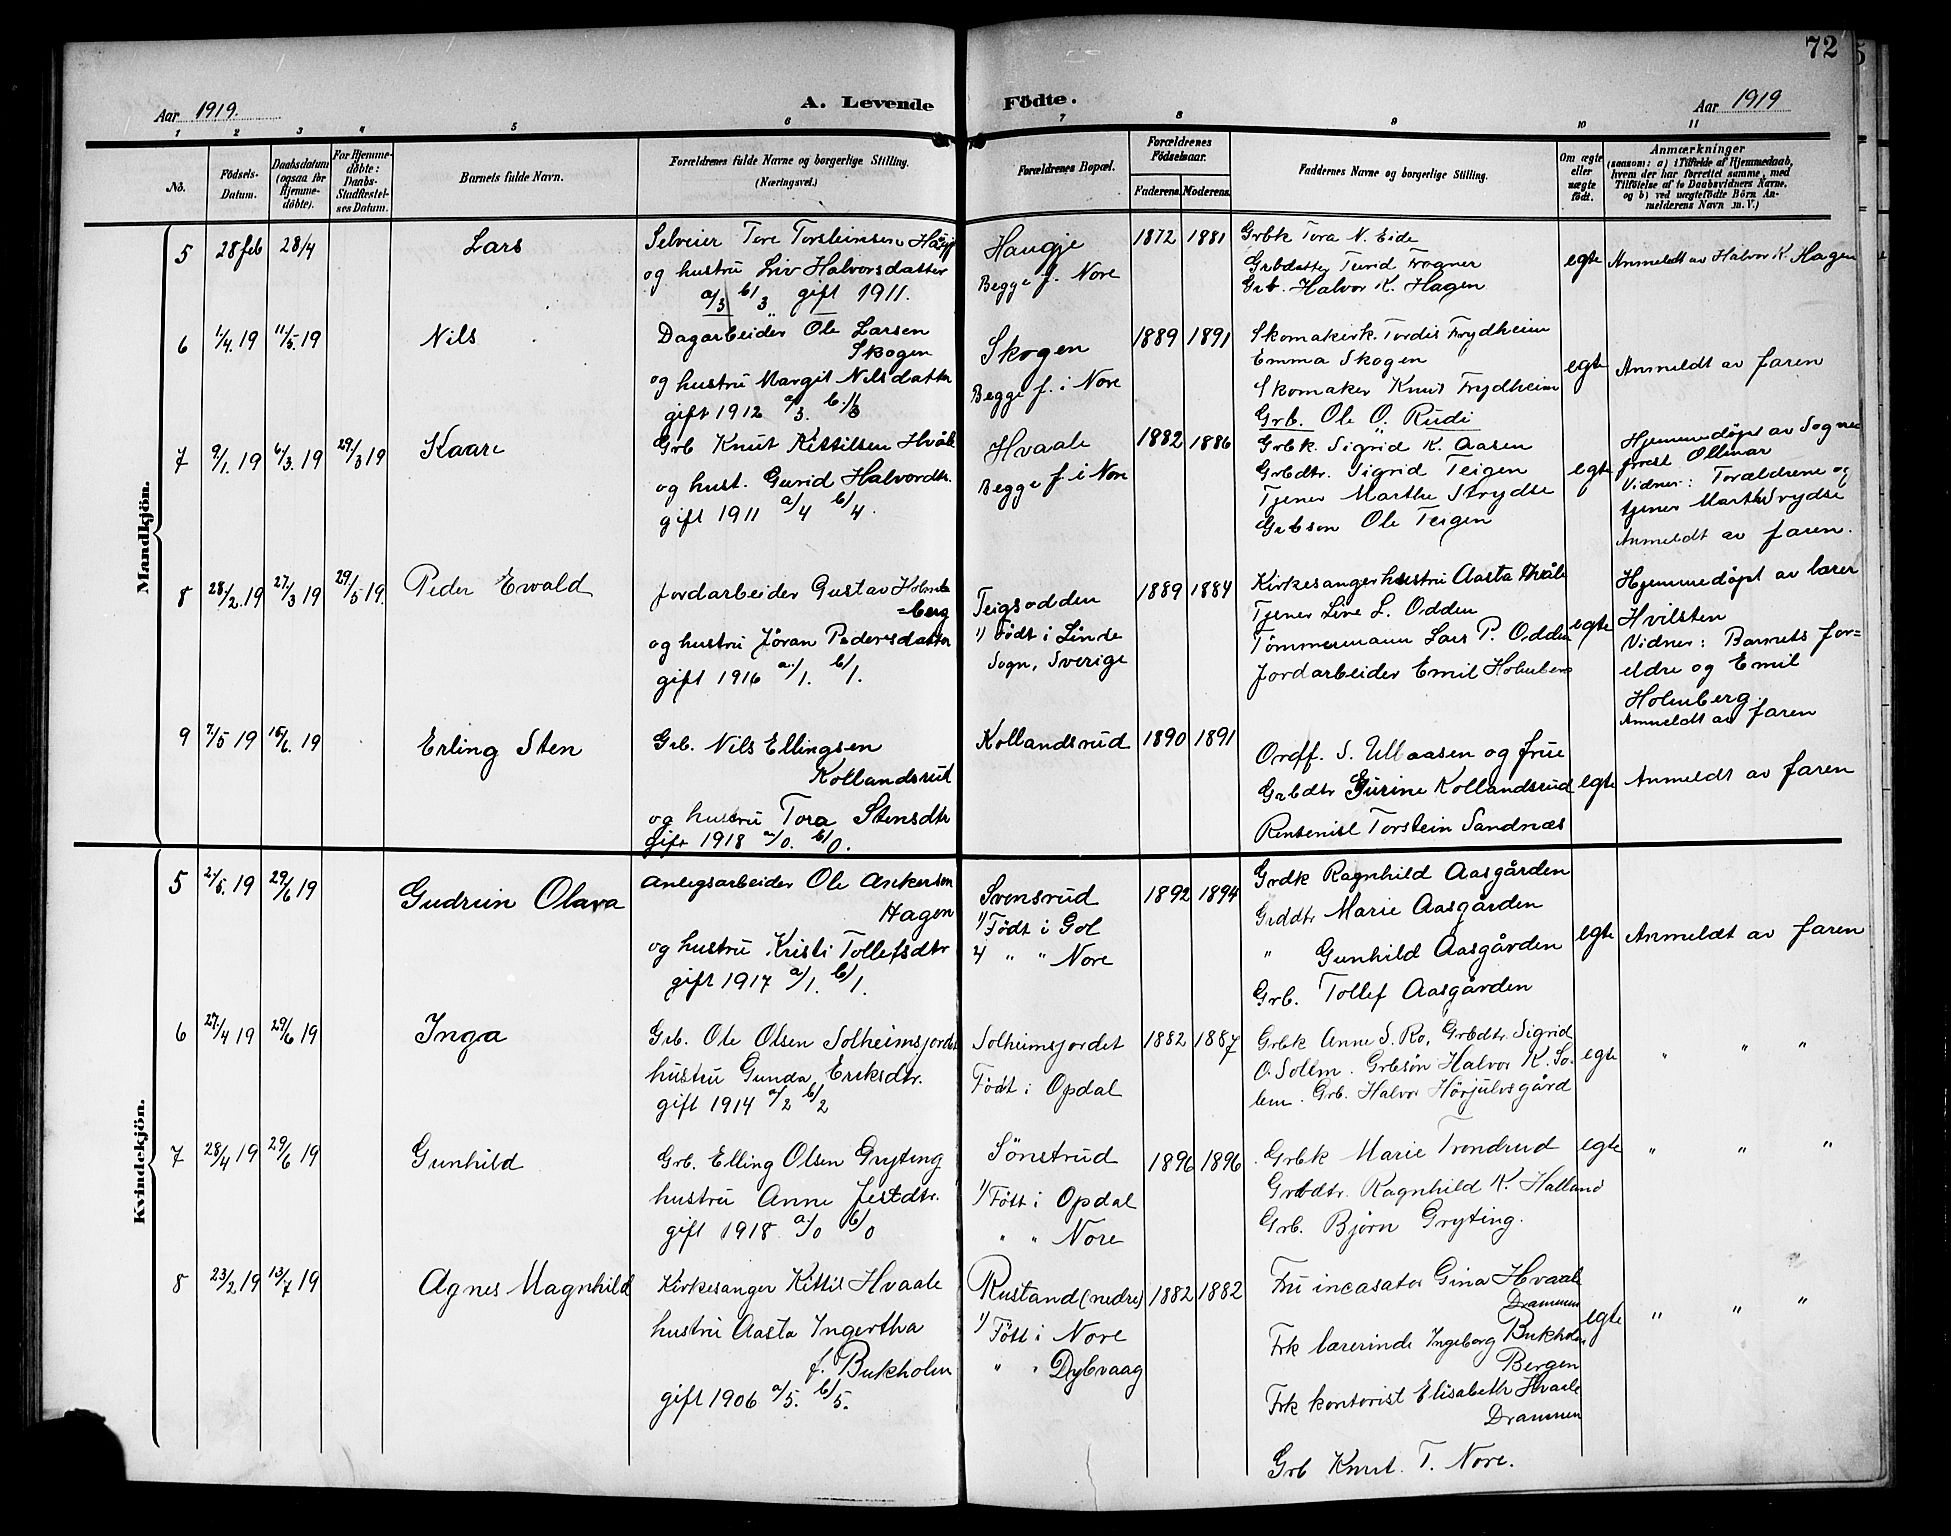 72
Aar 1919.
A. Levende
Födte.
Aar 1919
1 2 3 4 5 6 7 8 9 10 11
No.
Födsels-Datum.
Daabsdatum (ogsaa for Hjemme-döbte).
For Hjemme-döbte: Daabs-Stadfæstel-ses Datum.
Barnets fulde Navn.
Forældrenes fulde Navne og borgerlige Stilling.
(Næringsvei.)
Forældrenes Bopæl.
Forældrenes Födselsaar.
Faderens. Moderens.
Faddernes Navne og borgerlige Stilling.
Om ægte eller uægte födt.
Anmærkninger
(saasom: a) i Tilfælde af Hjemmedaab,
hvem der har forrettet samme, med
Tilföielse af to Daabsvidners Navne,
og b) ved uægtefödte Börn An-
melderens Navn m. V.)
Mandkjön.
5 28 feb 28/4 Lars
Selveier Tore Torsteinsen
og hustru Liv Halvorsdatter
a/3 b/3 gift 1911.
Haugje
Begge f. Nore
1872 1881
Grbk Tora N. Eide
Grbdatter Turid Frogner
Grb. Halvor K. Hagen
egte
Anmeldt av Halvor K. Hagen
6 1/4.19 11/5.19 Nils
Dagarbeider Ole Larsen
Skogen
og hustru Margit Nilsdatter
gift 1912 a/3. b/3
Skogen
Begge f. i Nore
1889 1891
Skomakerk. Tordis Frydheim
Emma Skogen
Skomaker Knut Frydheim
Grb. Ole O. Rudi
egte
Anmeldt av faren
7 9/1.19 6/3.19 29/3 19 Kaare
Grb Knut Kittilsen Hvåle
og hust. Gunid Halvordtr.
gift 1911 a/4 b/4.
Hvaale
Begge f. i Nore
1882 1886
Grbk. Sigrid K. Aasen
Grbdtr. Sigrid Teigen
Tjener Marthe Strydse
Grbson Ole Teigen
egte
Hjemmedøpt av Sogne
prest Ollmar
Vidner: Foraldrene og
tjener Marthe Srydse
Anmeldt av faren.
8 28/2.19 27/3 19 29/5 19. Peder Ewald
Jordarbeider Gustav Holm
=berg
og hustru Jöran Pedersdatter
gift 1916 a/1. b/1.
Teigsodden
1/ Født i Linde
Sogn, Sverige
1889 1884
Kirkesangerhustru Aasta Hvåle
Tjener Live L. Odden
Tømmermann Lars P. Odden
Jordarbeider Emil Holmberg
egte
Hjemmedøpt av lærer
Hvilsten
Vidner: Barnets for=
eldre og Emil
Holmberg.
Anmeldt av faren
9 7/5 19 15/6. 19 Erling Sten
Grb. Nils Ellingsen
Kollandsrud
og hustru Tora Stensdtr
gift 1918 a/0. b/0.
Kollandsrud
1890 1891
Ordf. S. Ullaasen og frue
Grbdtr Gurine Kollandsrud
Rentenist Torstein Sandnæs
egte
Anmeldt av faren
Kvindekjön.
5 2/5.19 29/6 19 Gudrun Olava
Anlegsarbeider Ole Ankersen
Hagen
og hustru Kristi Tollefsdtr
gift 1917 a/1. b/1.
Svensrud
1/ Født i Gol
2/ " " Nore
1892 1894
Grdk Ragnhild Aasgården
Grddtr Marie Aasgården
" Gunhild Aasgården
Grb. Tollef Aasgården
egte
Anmeldt av faren
6 27/4 19 29/6 19 Inga
Grb. Ole Olsen Solheimsjordet
hustru Gunda Eriksdtr.
gift 1914 a/2 b/2
Solheimsjordet
Født i Opdal
1882 1887
Grbk Anne S. Ro, Grbdtr. Sigrid
O. Solem. Grbsøn Halvor K. So-
lem. Grb. Halvor Hörjulvsgård
egte
" " "
7 28/4 19 29/6 19 Gunhild
Grb. Elling Olsen Gryting
hustru Anne Jestdtr.
gift 1918 a/0 b/0
Sönstrud
1/ Født i Opdal
" " Nore
1896 1896
Grbk Marie Trondrud
Grbdtr. Ragnhild K. Halland
Grb. Bjørn Gryting.
egte
" " "
8 23/2 19 13/7 19 Agnes Magnhild
Kirkesanger Kittil Hvaale
hustru Aasta Ingertha
f. Bukholm
gift 1906 a/5. b/5.
Rustand (nedre)
1/ Født i Nore
" " Dybvaag
1882 1882
Fru incasator Gina Hvaale
Drammen
Frk lærerinde Ingeborg Bukholm
Bergen
Frk kontorist Elisabeth Hvaale
Drammen
Grb Knut. T. Nore.
egte
" " "